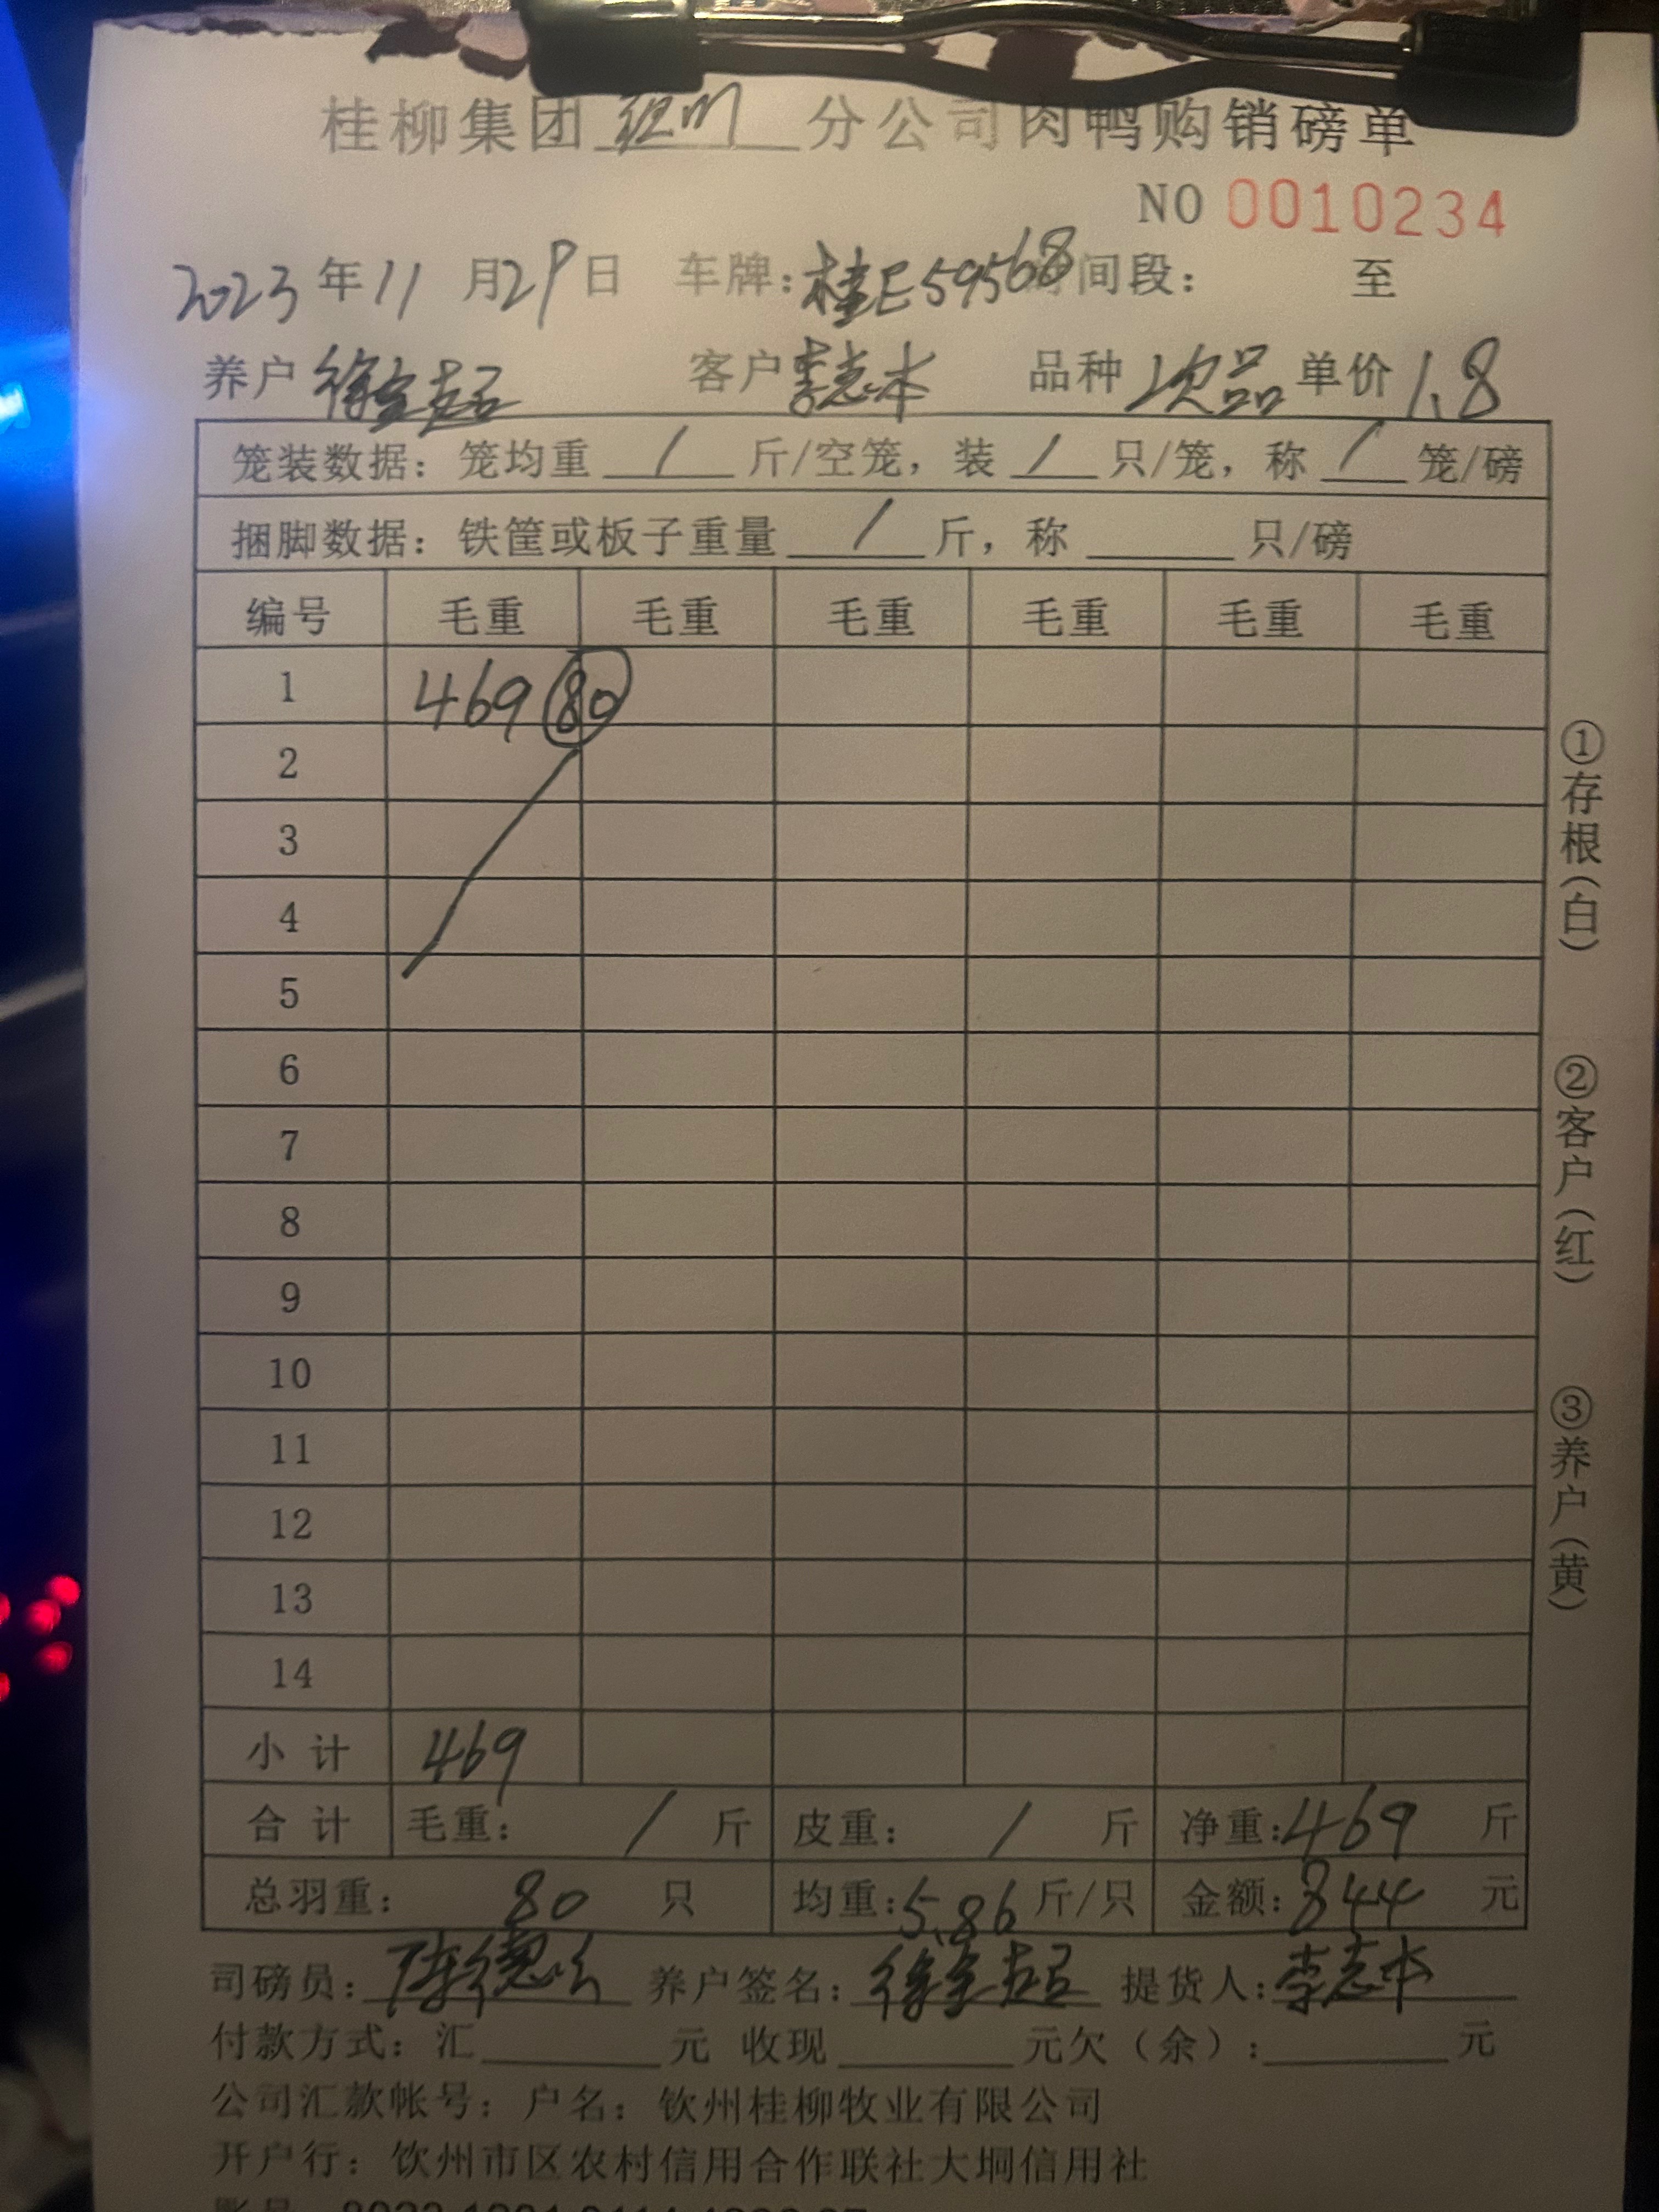 桂柳集团 钦州 分公司肉鸭购销磅单
NO 0010234
2023年11月29日 车牌:桂E59568 时间段: 至
养户 徐宝超 客户 李志本 品种 次品 单价 1.8
笼装数据: 笼均重 / 斤/空笼, 装 / 只/笼, 称 / 笼/磅
捆脚数据: 铁筐或板子重量 / 斤, 称 只/磅
编号 毛重 毛重 毛重 毛重 毛重 毛重
1 469 80
2
3
4
5
6
7
8
9
10
11
12
13
14
小计 469
合计 毛重: / 斤 皮重: / 斤 净重:469 斤
总羽重: 80 只 均重:5.86 斤/只 金额:844 元
司磅员: 养户签名:徐宝超 提货人:李志本
付款方式: 汇 元 收现 元欠(余): 元
公司汇款帐号: 户名: 钦州桂柳牧业有限公司
开户行: 钦州市区农村信用合作联社大垌信用社
①存根(白)
②客户(红)
③养户(黄)